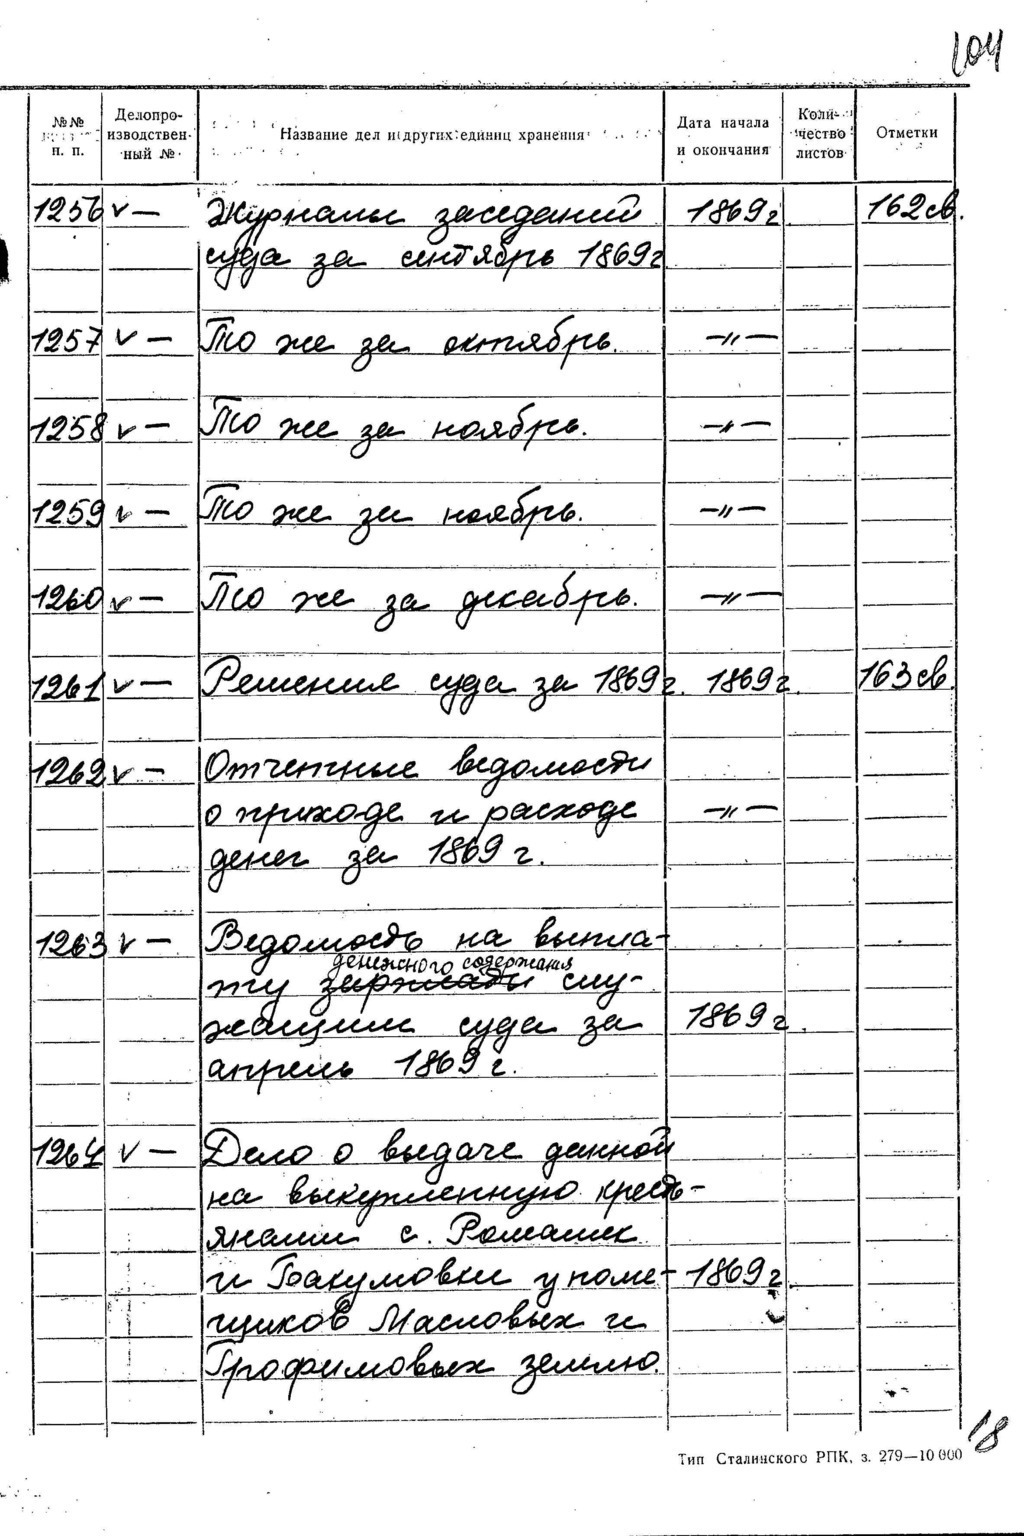 104
№№ п. п. Делопроизводственный № Название дел и других единиц хранения Дата начала и окончания Количество листов Отметки
1256 v — Журналы заседаний 1869 г. 162 св.
суда за сентябрь 1869 г
1257 v — То же за октябрь. —"—
1258 v — То же за ноябрь. —"—
1259 v — То же за ноябрь. —"—
1260 v — То же за декабрь. —"—
1261 v — Решения суда за 1869 г. 1869 г. 163 св.
1262 v — Отчетные ведомости
о приходе и расходе —"—
денег за 1869 г.
1263 v — Ведомость на выпла-
денежного содержания
жу зарплаты слу-
жащим суда за 1869 г.
апрель 1869 г.
1264 v — Дело о выдаче данной
на выкупленную кресть-
янами с. Ромашек
и Бакумовки у поме- 1869 г.
щиков Масловых и
Трофимовых землю.
18
Тип Сталинского РПК, з. 279—10 000